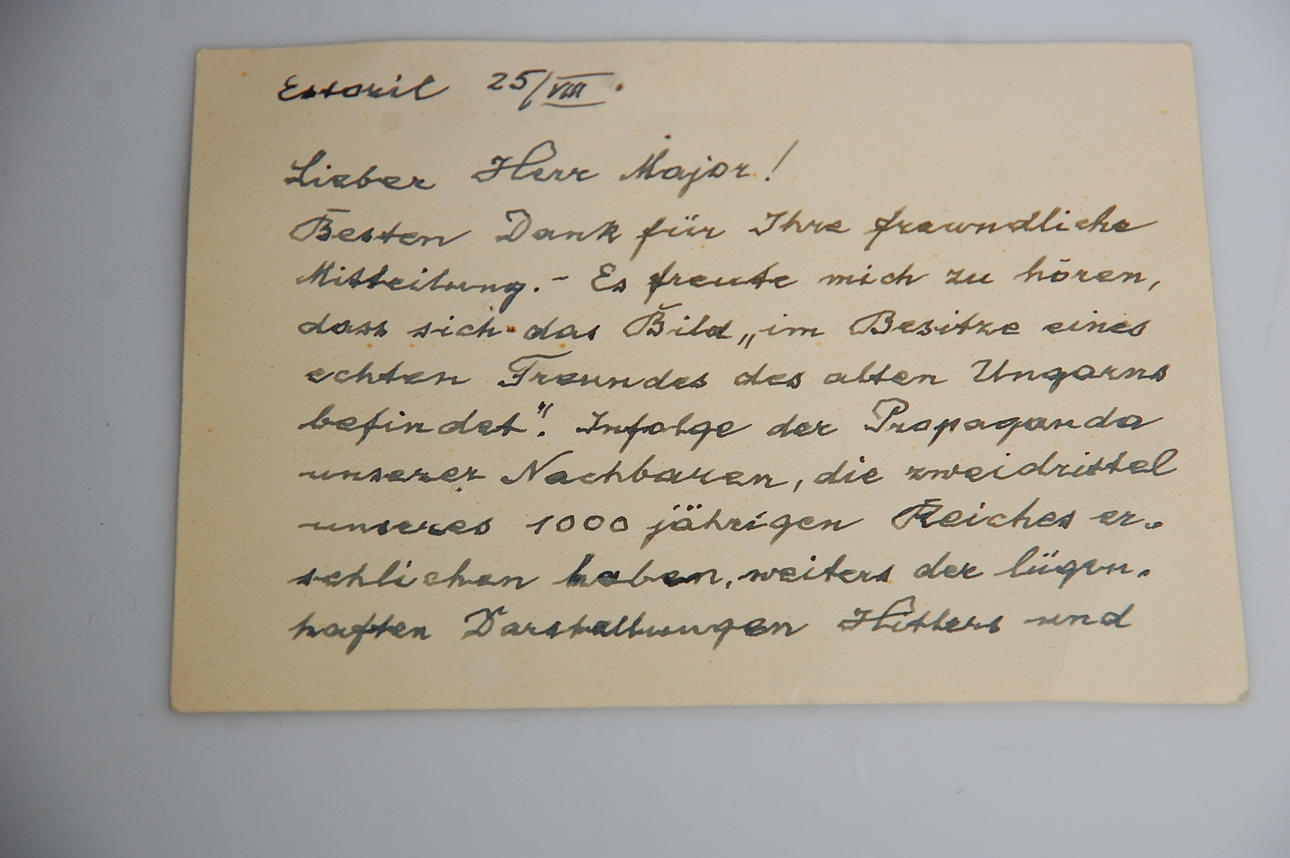 Estoril 25/VIII.
Lieber Herr Major!
Besten Dank für Ihre freundliche
Mitteilung.- Es freute mich zu hören,
dass sich das Bild „im Besitze eines
echten Freundes des alten Ungarns
befindet". Infolge der Propaganda
unserer Nachbaren, die zweidrittel
unseres 1000 jährigen Reiches er-
schlichen haben, weiters der lügen-
haften Darstellungen Hitlers und